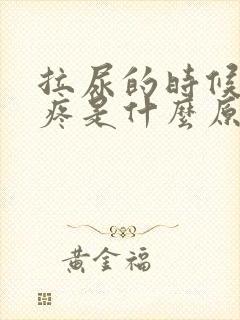 拉尿的時候
疼是什麼原
黃金福